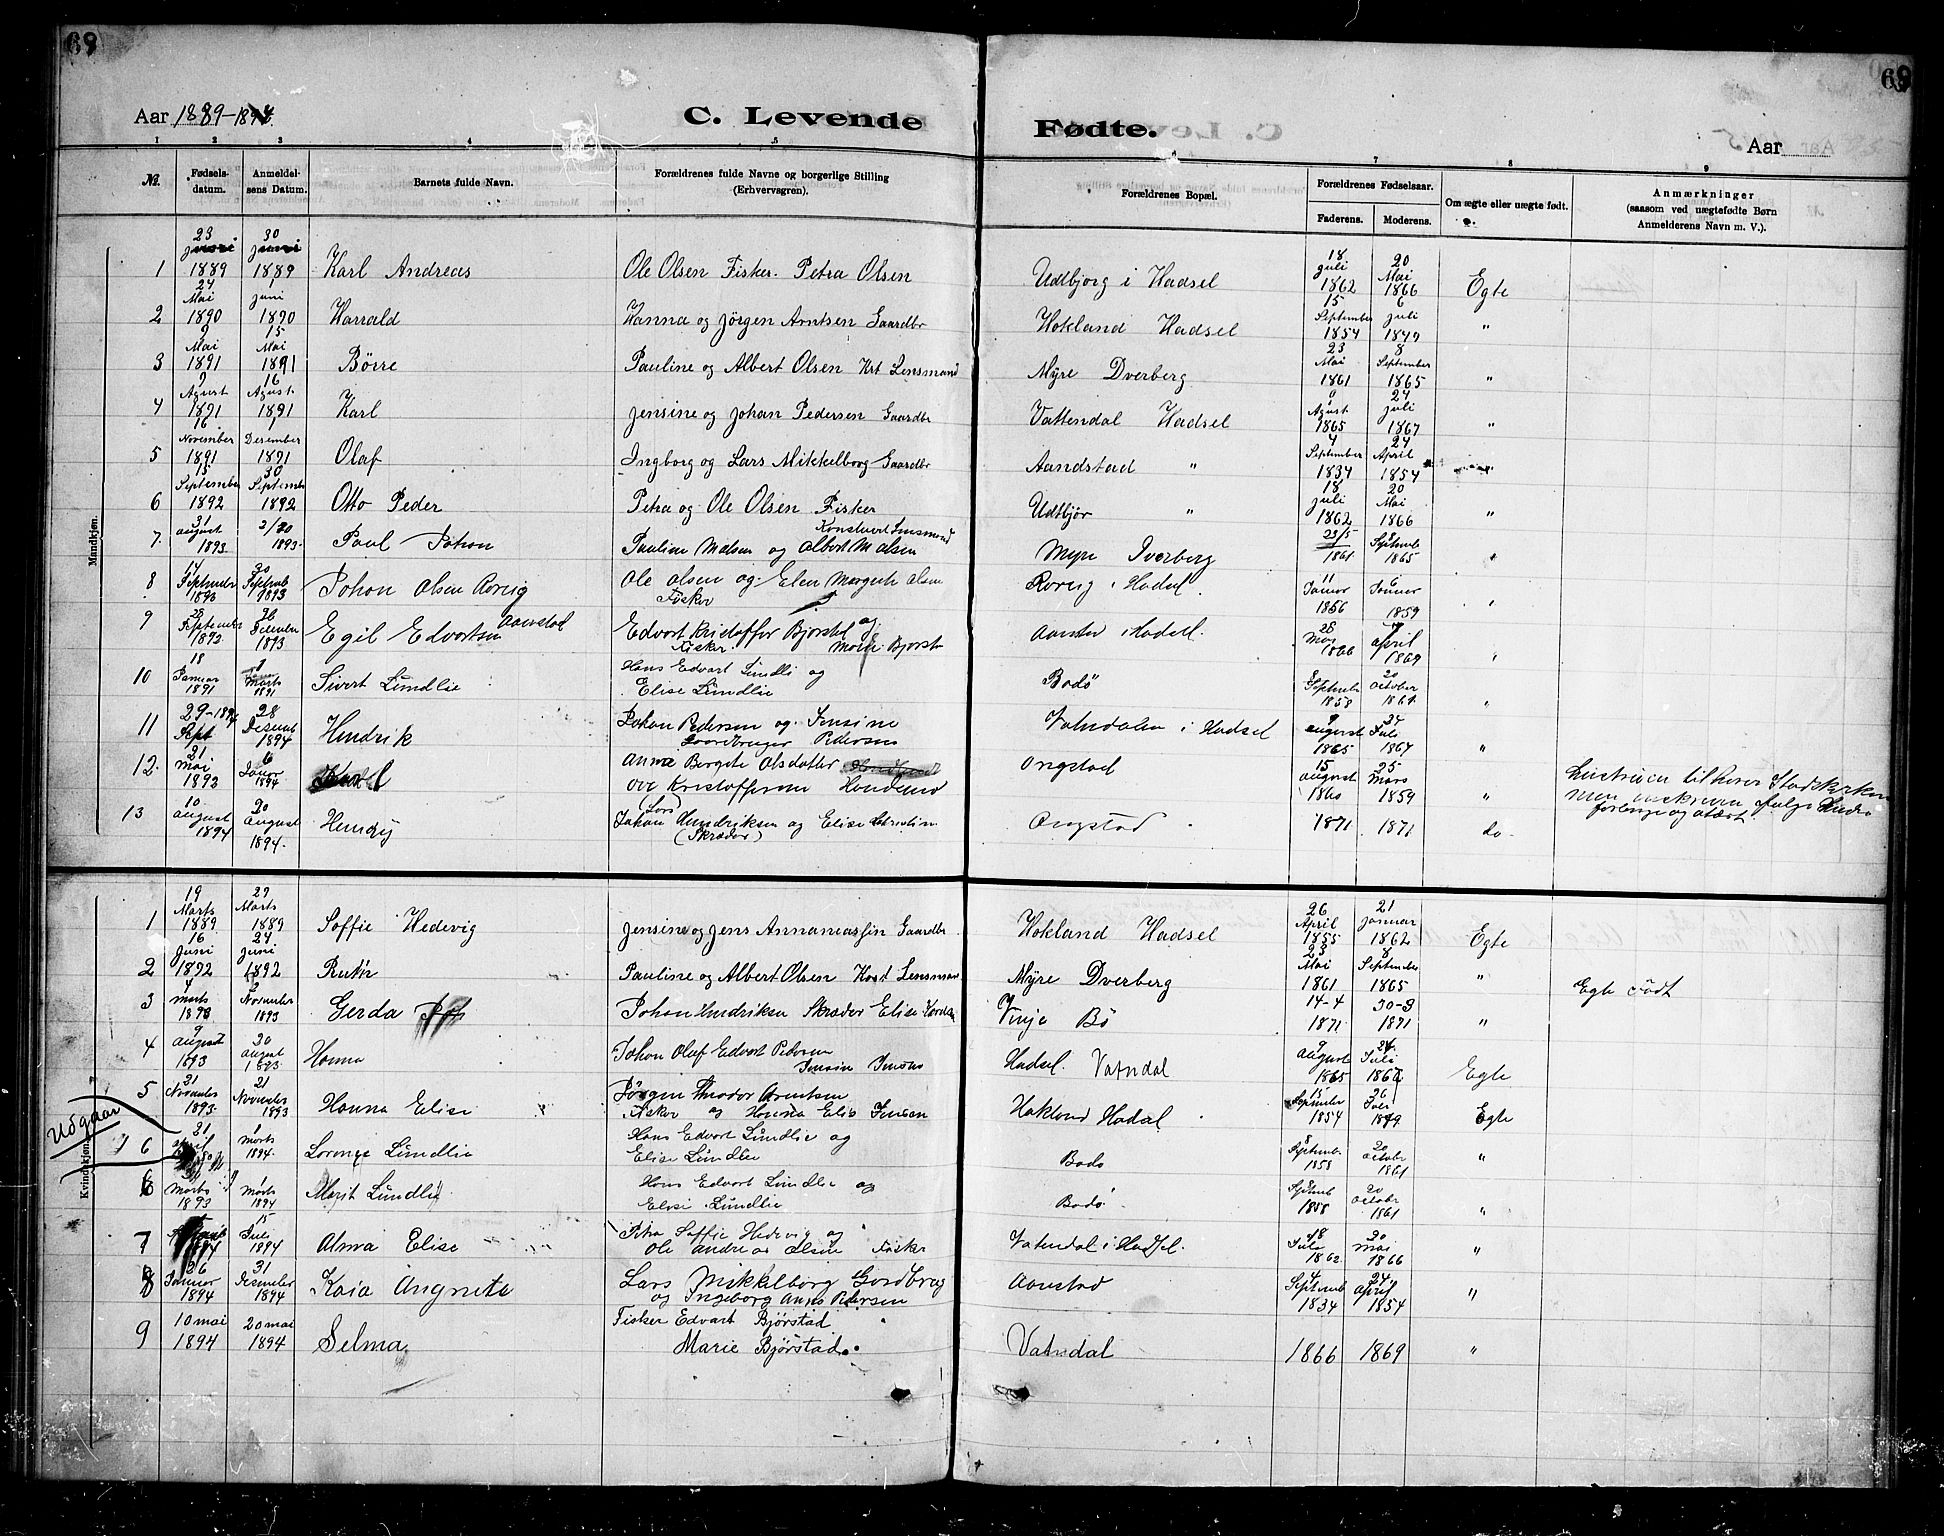 69
69
Aar 1889-1894.
C. Levende
Fødte.
Aar
1 2 3 4 5 6 7 8 9
№. Fødsels-datum. Anmeldel-sens Datum. Barnets fulde Navn. Forældrenes fulde Navne og borgerlige Stilling (Erhvervsgren). Forældrenes Bopæl. Forældrenes Fødselsaar. Faderens. Moderens. Om ægte eller uægte født. Anmærkninger (saasom ved uægtefødte Børn Anmelderens Navn m. V.).
Mandkjøn.
1 23 juni 1889 30 juni 1889 Karl Andreas Ole Olsen Fisker. Petra Olsen Udtbjorg i Hadsel 18 juli 1862 20 Mai 1866 Egte
2 24 Mai 1890 1 juni 1890 Harrald Hanna og Jörgen Arntsen Gaardbr Hokland Hadsel 15 September 1854 6 juli 1849 "
3 9 Mai 1891 15 Mai 1891 Börre Pauline og Albert Olsen Kst Lensmand Myre Dverberg 23 Mai 1861 8 September 1865 "
4 9 Agust 1891 16 Agust. 1891 Karl Jensine og Johan Pedersen Gaardbr Vattendal Hadsel 9 Agust 1865 24 juli 1867 "
5 16 November 1891 1 Desember 1891 Olaf Ingborg og Lars Mikkelborg Gaardbr Aandstad " 4 September 1834 24 April 1854 "
6 15 September 1892 30 September 1892 Otto Peder Petra og Ole Olsen Fisker Udtbjör " 18 juli 1862 20 Mai 1866 "
7. 31 august 1893. 1893. Paul Johan Pauline og Albert Myre Dverberg 23/5 1861 1865 "
8 14 September 1893 20 1893 Johan Olsen Roreig Ole Olsen og Elen Margrete Olsen Fisker Roreig i Hadsel. 11 Januar 1856 6 Januar 1859 "
9 28 September 1893 1893 Egil Edvartsen Aanstad Edvart Kristoffer Bjorstad og Fisker. Aanstad i Hadsel. 28 1866 april 1869 "
10 18 Januar 1891 1 Marts 1891 Sivert Lundlie Hans Edvart Lundli og Elise Lundlie Bodö September 1858 20 October 1861 "
11 29-1894 Sept 28 Desemb 1894 Hendrik Johan Pedersen og Jensine Pedersen Vatndalen i Hadsel 9 august 1865 24 Juli 1867 "
12. 21 mai 1892 6 Januar 1894 Karl Anna Bergete Olsdatter Ove Kristoffersen Ongstad 15 august 1860 25 Mars 1859 "
13 10 august 1894 20 august 1894. Hendij (Lars) Johan Hendriksen og Elise (Skræder) Ongstad 1871 1871 do.
Kvindekjøn.
1 19 Marts 1889 27 Marts 1889 Soffie Hedevig Jensine og Jens Annaniassin Gaardbr. Hokland Hadsel 26 April 1855 21 Januar 1862 Egte
2 16 Juni 1892 24 juni 1892 Ruth Pauline og Albert Olsen Kost Lensman Myre Dverberg 23 Mai 1861 8 September 1865 " Egte födt
3 4 Marts 1893 2 November 1893 Gerda Johan Hendriksen Skræder Elise Vinje Bö 14-4 1871. 30-3 1871 "
4 9 august 1893 20 august 1893. Hanna Johan Olaf Edvart Pedersen Jensine Jensens Hadsel. Vatndal 9 August 1865 24 Juli 1867 Egte
5 21 November 1893 21 November 1893 Hanna Elise Jörgin Theodor Arntsen Fisker og Hanna Elis Jensen Hokland Hadsel 15 September 1854 1849 Egte
Udgaar
6 31 April 1 Marts 1894. Lorenze Lundlie Hans Edvart Lundlie og Elise Lundlie Bodo September 1858 20 October 1861 "
6 Marts 1893 1 Marts 1894 Marit Lundlie Hans Edvart Lundlie og Elise Lundlie Bodö 1858 20 October 1861 "
7 1894 15 Juli 1894 Alma Elise Petra Soffie Hedevig og Ole Andreas Olsen Fisker Vatndal i Hadsel. 18 Juli 1862 20 Mai 1866 "
8 26 Januar 1894 31 Desember 1894 Kaia Angneta Lars Mikkelborg Gordbrug og Ingeborg Anna Pedersen Aanstad 4 Septemb 1834 24 April 1854 "
9 10 mai 1894 20 mai 1894 Selma Fisker Edvart Bjørstad Marie Bjørstad. Vatndal 1866 1869 "